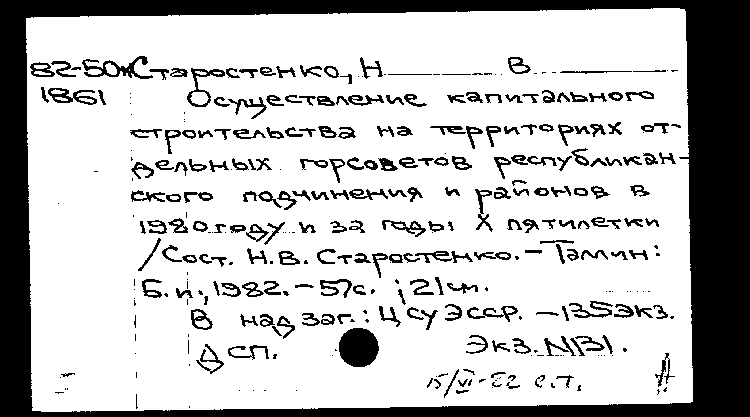 82-50к Старостенко, Н В
1861 Осуществление капитального
строительства на территориях от-
дельных горсоветов республикан-
ского подчинения и районов в
1980 году и за годы X пятилетки
/Сост. Н.В. Старостенко. - Таллин:
Б.и., 1982. - 57с. ; 21см.
В надзаг.: ЦСУ ЭССР. - 135экз.
ДСП. Экз. N131.
15/VI-82 с.т.